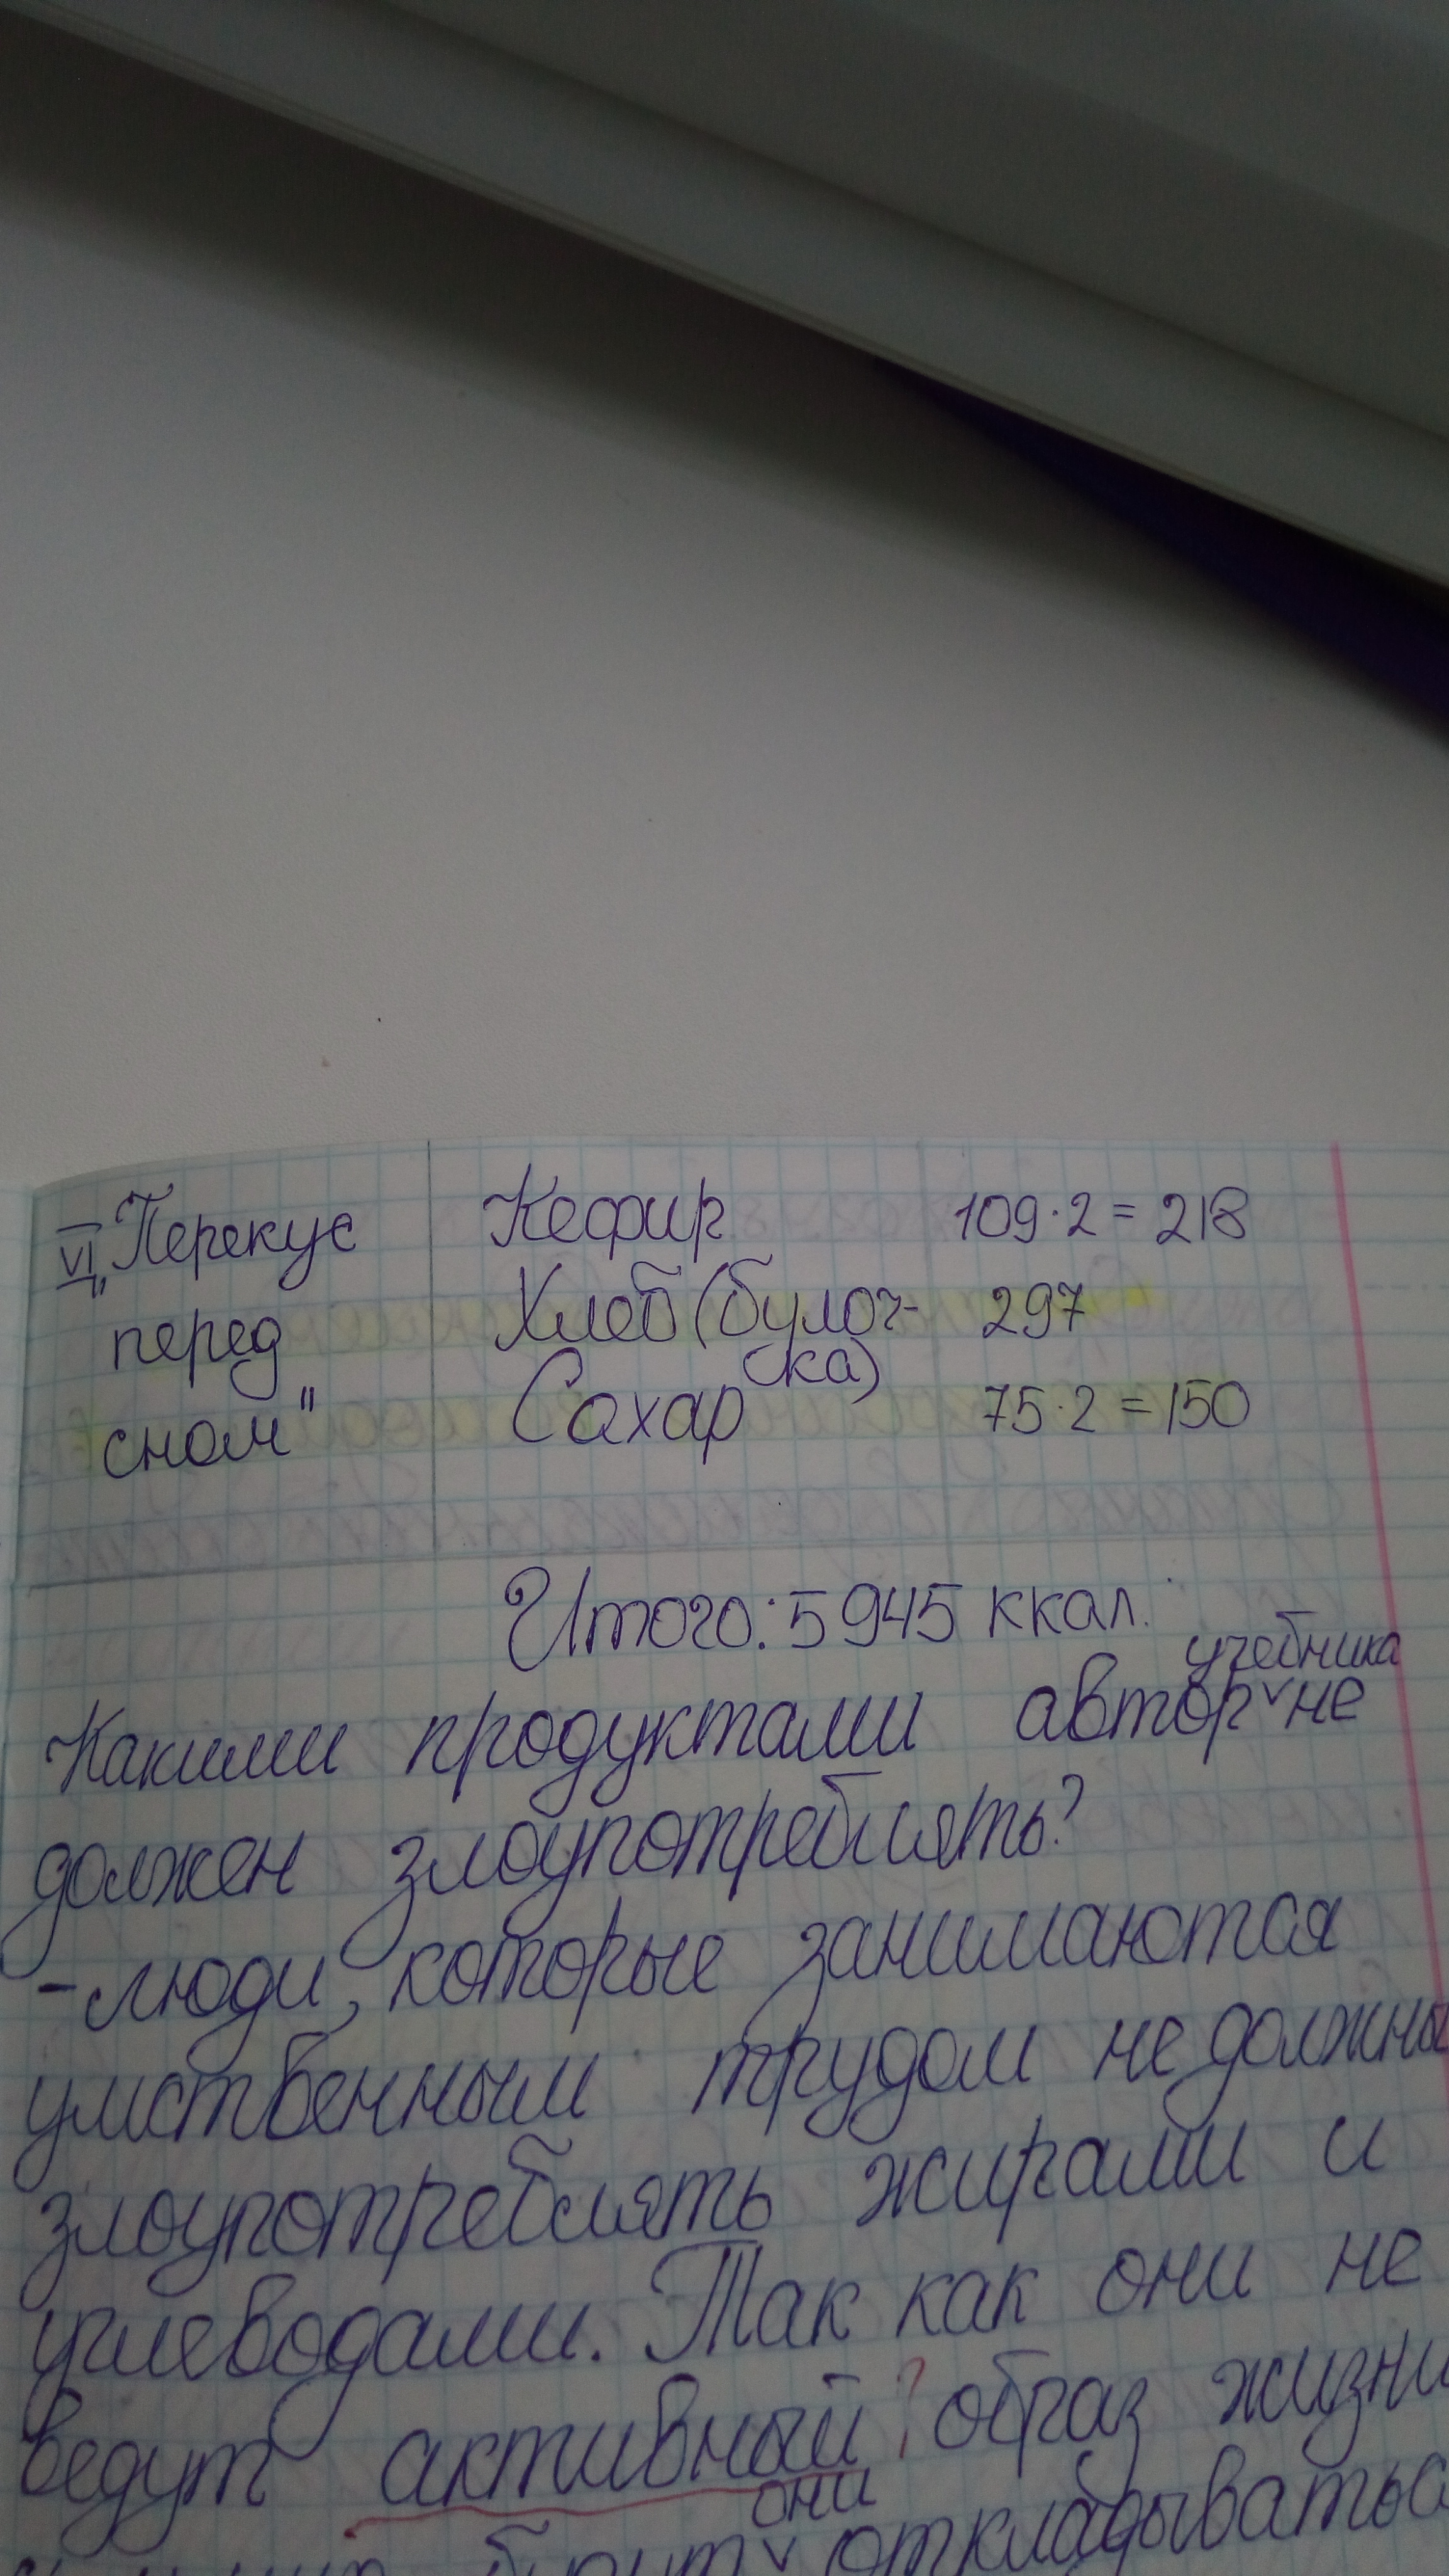 VI „Перекус Кефир 109·2=218
перед Хлеб (булоч- 297
ка)
сном" Сахар 75·2=150
Итого: 5945 ккал.
учебника
Какими продуктами автор ˅ не
должен злоупотреблять?
-люди, которые занимаются
умственным трудом не должны
злоупотреблять жирами и
углеводами. Так как они не
ведут активный ? образ жизни
они
будут ˅ откладываться